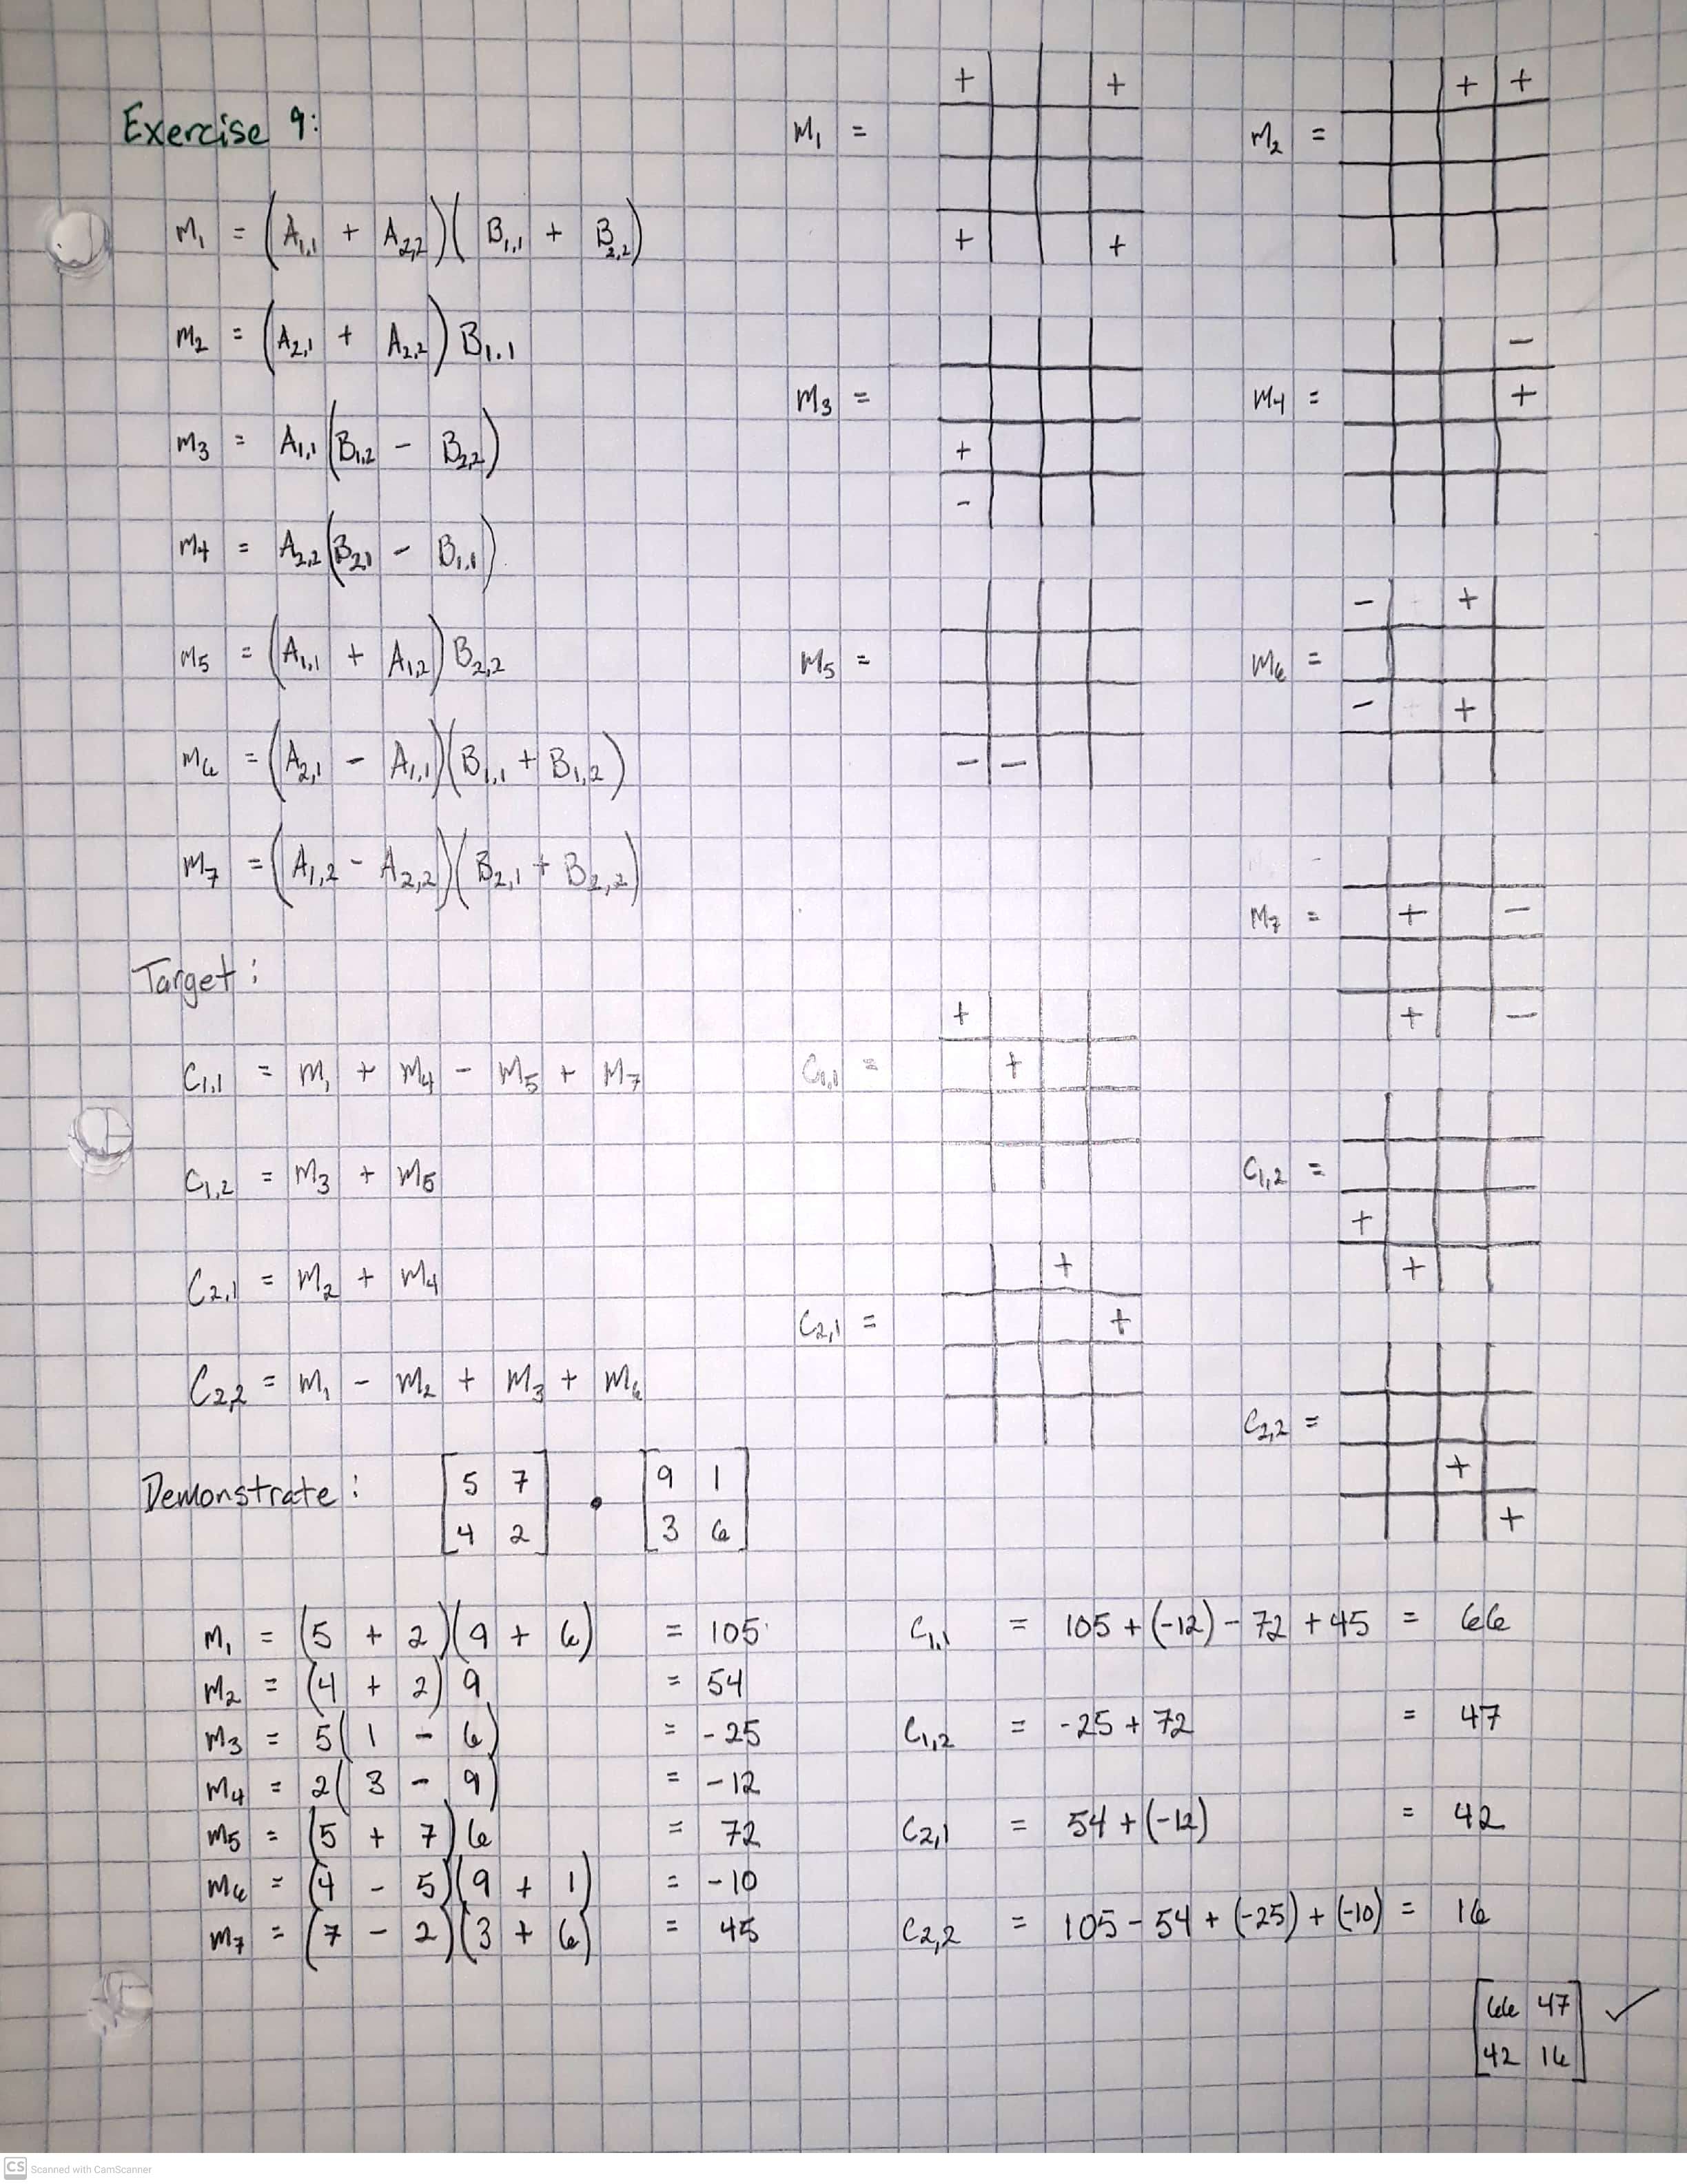 Exercise 9:
M1 = (A1,1 + A2,2)(B1,1 + B2,2)
M2 = (A2,1 + A2,2) B1,1
M3 = A1,1(B1,2 - B2,2)
M4 = A2,2(B2,1 - B1,1)
M5 = (A1,1 + A1,2) B2,2
M6 = (A2,1 - A1,1)(B1,1 + B1,2)
M7 = (A1,2 - A2,2)(B2,1 + B2,2)
Target:
C1,1 = M1 + M4 - M5 + M7
C1,2 = M3 + M5
C2,1 = M2 + M4
C2,2 = M1 - M2 + M3 + M6
+ +
M1 =
+ +
+ +
M2 =
M3 =
+
-
-
M4 = +
M5 =
- -
- +
M6 =
- +
M7 = + -
+ -
+
C1,1 = +
C1,2 =
+
+
+
C2,1 = +
C2,2 =
+
+
Demonstrate: [5 7 • [9 1
4 2] 3 6]
M1 = (5 + 2)(9 + 6) = 105
M2 = (4 + 2) 9 = 54
M3 = 5(1 - 6) = -25
M4 = 2(3 - 9) = -12
M5 = (5 + 7) 6 = 72
M6 = (4 - 5)(9 + 1) = -10
M7 = (7 - 2)(3 + 6) = 45
C1,1 = 105 + (-12) - 72 + 45 = 66
C1,2 = -25 + 72 = 47
C2,1 = 54 + (-12) = 42
C2,2 = 105 - 54 + (-25) + (-10) = 16
[66 47
42 16] ✓
CS Scanned with CamScanner